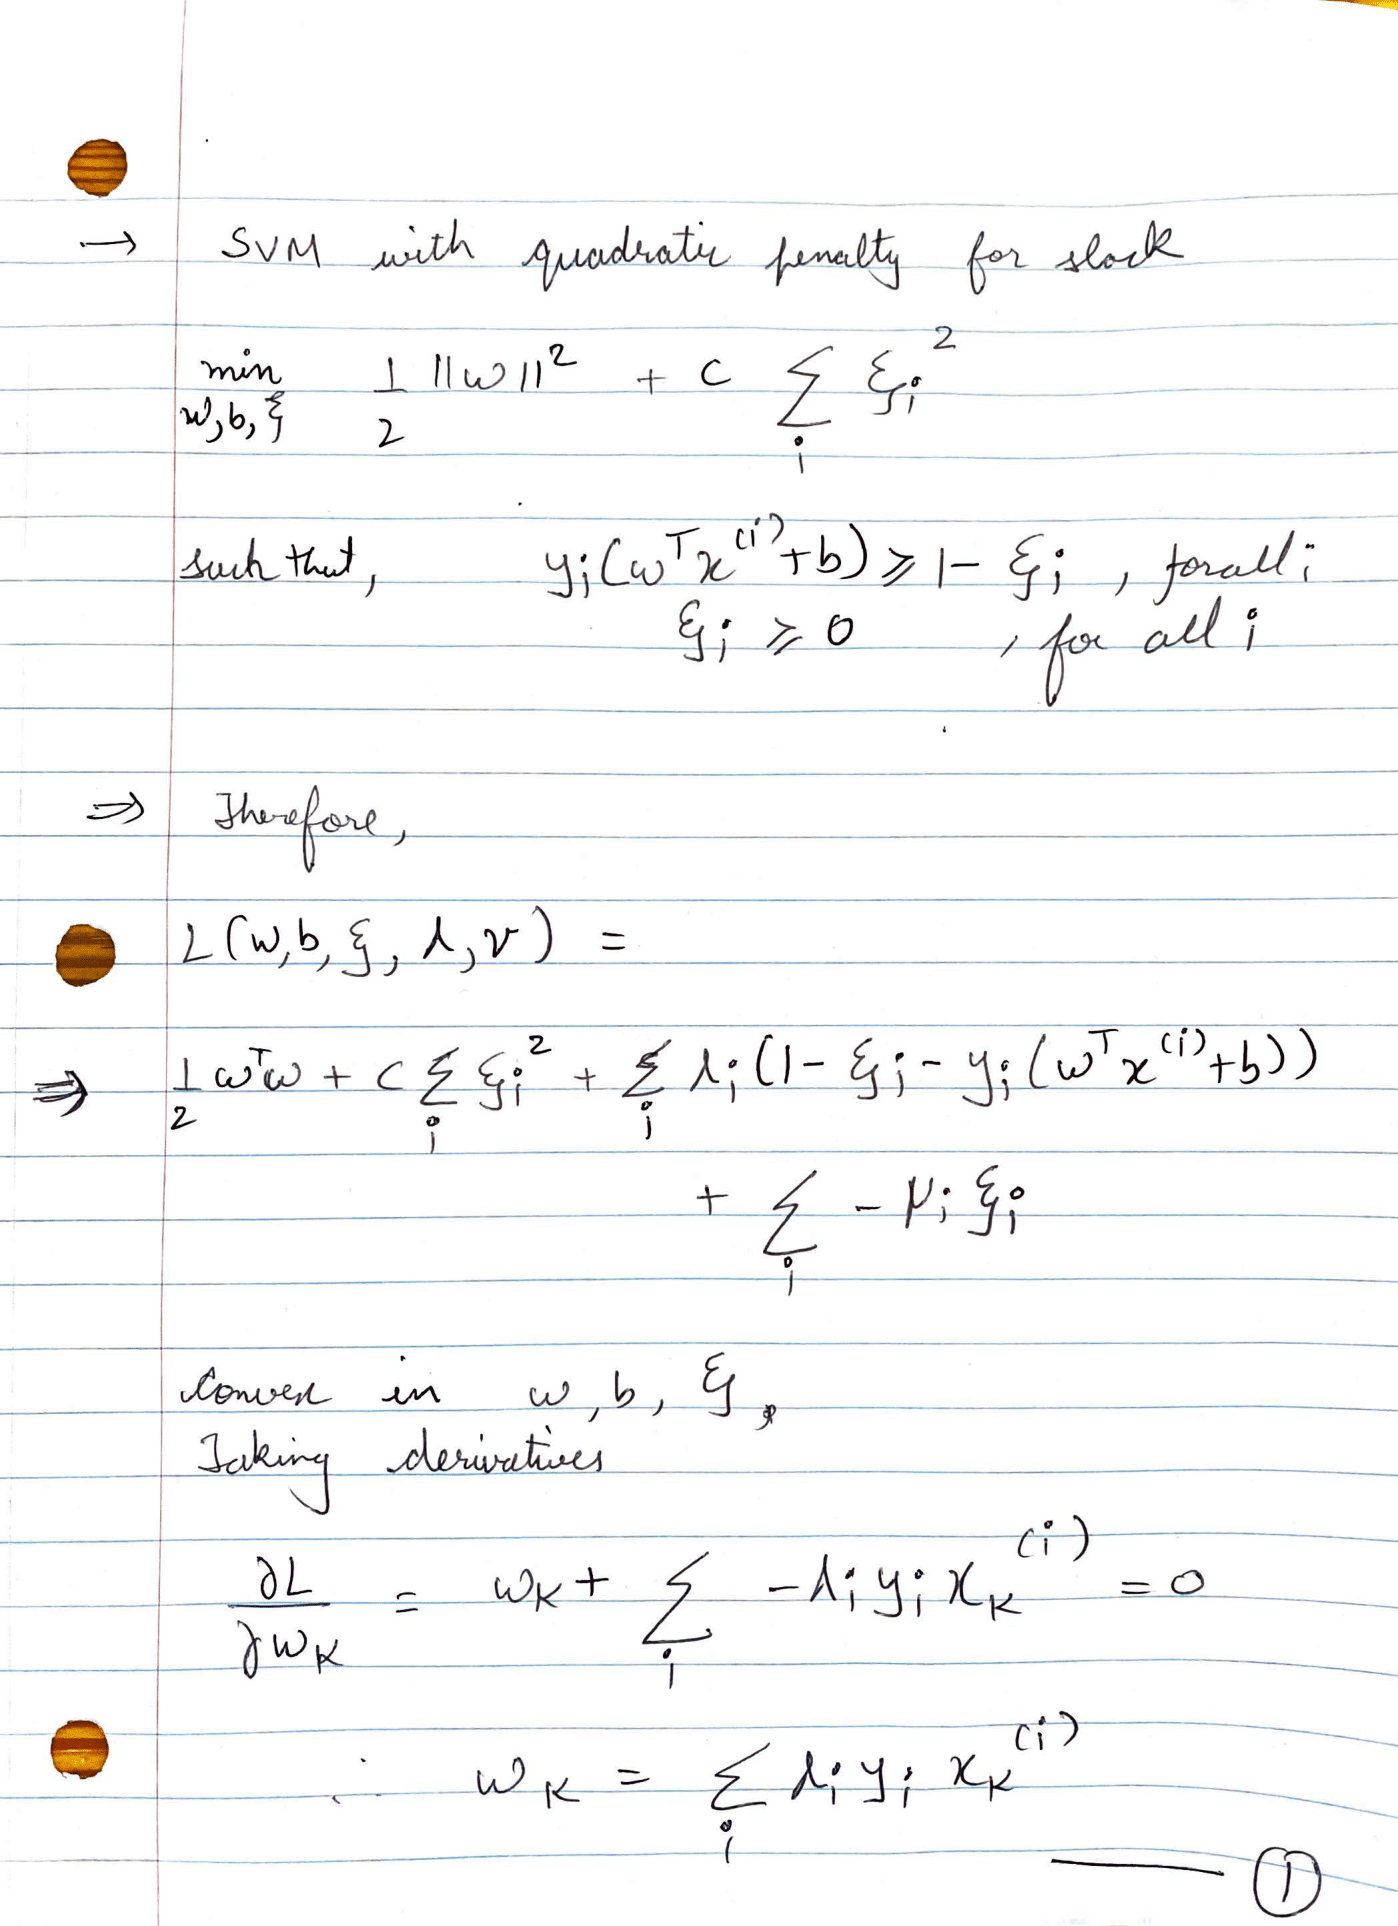 → SVM with quadratic penalty for slack
min 1/2 ||w||² + C Σ ξi²
w, b, ξ i
such that, yi(wᵀx⁽ⁱ⁾+b) ≥ 1 - ξi , for all i
ξi ≥ 0 , for all i
⇒ Therefore,
L(w, b, ξ, λ, ν) =
⇒ 1/2 wᵀw + C Σi ξi² + Σi λi(1 - ξi - yi(wᵀx⁽ⁱ⁾+b))
+ Σi - μi ξi
Convex in w, b, ξ,
Taking derivatives
∂L/∂wk = wk + Σi -λi yi xk⁽ⁱ⁾ = 0
∴ wk = Σi λi yi xk⁽ⁱ⁾
—— ①